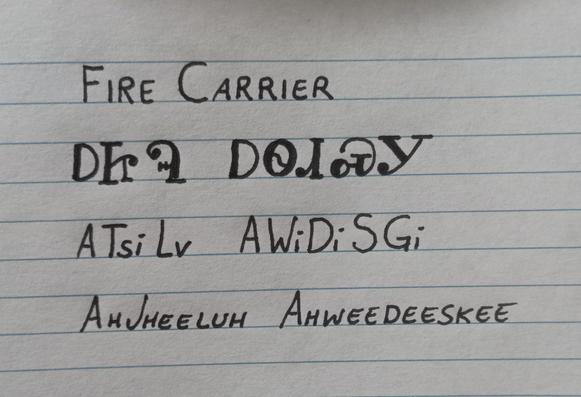 FIRE CARRIER
ᎠᏥᎸ ᎠᏫᏗᏍᎩ
ATsiLv AWiDiSGi
AHJHEELUH AHWEEDEESKEE